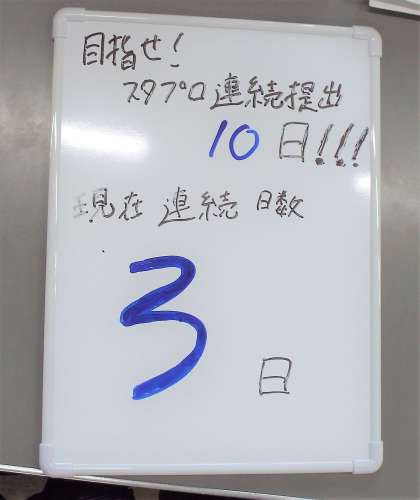 目指せ!
スタプロ連続提出
10日!!!
現在 連続 日数
3日